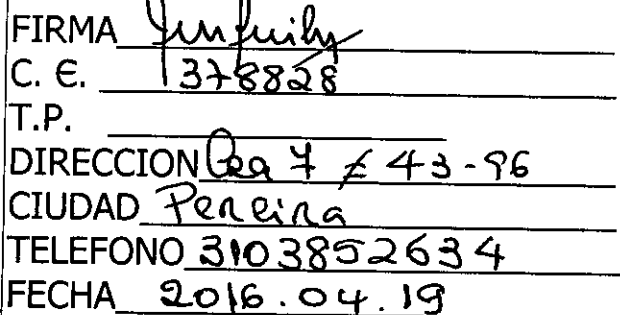 FIRMA
C. E. 378828
T.P.
DIRECCION Cra 7 # 43-96
CIUDAD Pereira
TELEFONO 3103852634
FECHA 2016.04.19